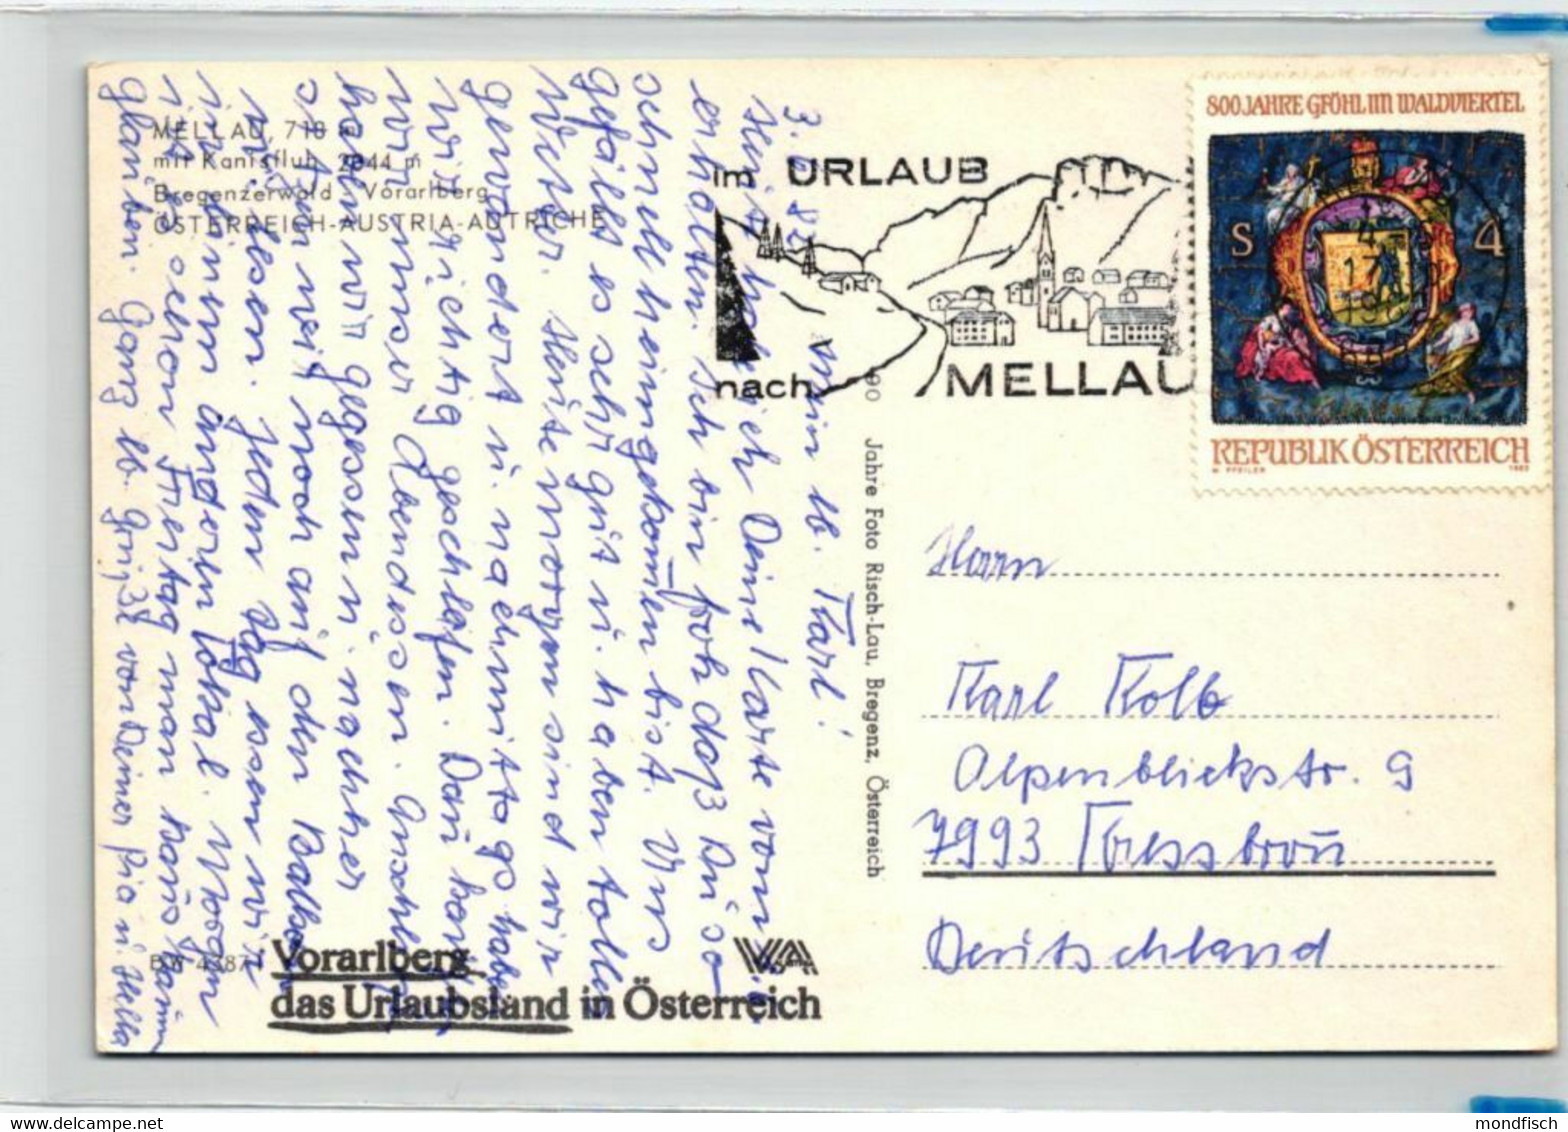 MELLAU, 718 m
mit Kanisfluh 2044 m
Bregenzerwald - Vorarlberg
ÖSTERREICH-AUSTRIA-AUTRICHE
im URLAUB
nach MELLAU
800 JAHRE GFÖHL IM WALDVIERTEL
S 4
REPUBLIK ÖSTERREICH
90 Jahre Foto Risch-Lau, Bregenz, Österreich
Mein lb. Karl!
Heute habe ich Deine Karte vom
erhalten. Ich bin froh daß Du so
schnell heimgekommen bist. Uns
gefällt es sehr gut u. haben tolles
Wetter. Heute morgen sind wir
gewandert u. nachmittags haben
wir richtig geschlafen. Dann kam
unser Abendessen. Anschl.
haben wir gegessen u. nachher
sitzen wir noch auf den Balkon
u. lesen. Jeden Tag essen wir
in einem anderen Lokal. Morgen
ist schon Freitag man kanns kaum
glauben. Ganz lb. Grüße von Deiner Pia u. Hella
Herrn
Karl Kolb
Alpenblickstr. 9
7993 Kressbronn
Deutschland
Vorarlberg
das Urlaubsland in Österreich
mondfisch